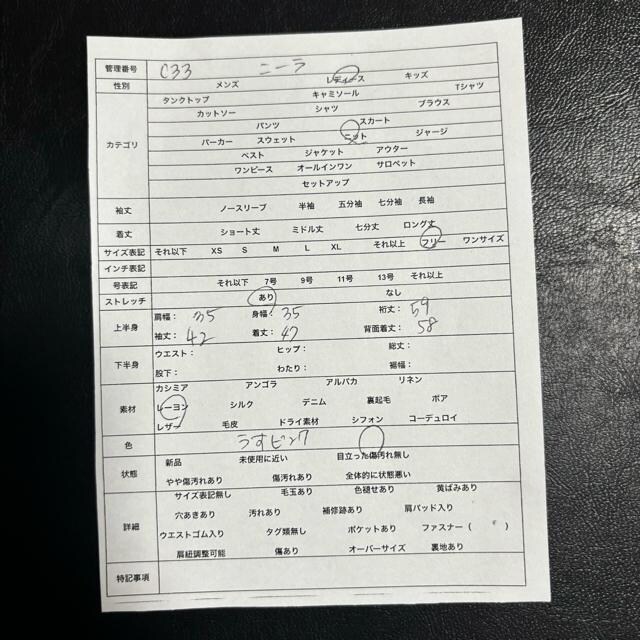 管理番号 C33 ニーラ
性別 メンズ レディース キッズ
カテゴリ
タンクトップ キャミソール Tシャツ
カットソー シャツ ブラウス
パンツ スカート
パーカー スウェット ニット ジャージ
ベスト ジャケット アウター
ワンピース オールインワン サロペット
セットアップ
袖丈 ノースリーブ 半袖 五分袖 七分袖 長袖
着丈 ショート丈 ミドル丈 七分丈 ロング丈
サイズ表記 それ以下 XS S M L XL それ以上 フリー ワンサイズ
インチ表記
号表記 それ以下 7号 9号 11号 13号 それ以上
ストレッチ あり なし
上半身
肩幅：35 身幅：35 裄丈：59
袖丈：42 着丈：47 背面着丈：58
下半身
ウエスト： ヒップ： 総丈：
股下： わたり： 裾幅：
素材
カシミア アンゴラ アルパカ リネン
レーヨン シルク デニム 裏起毛 ボア
レザー 毛皮 ドライ素材 シフォン コーデュロイ
色 うすピンク
状態
新品 未使用に近い 目立った傷汚れ無し
やや傷汚れあり 傷汚れあり 全体的に状態悪い
詳細
サイズ表記無し 毛玉あり 色褪せあり 黄ばみあり
穴あきあり 汚れあり 補修跡あり 肩パッド入り
ウエストゴム入り タグ類無し ポケットあり ファスナー（ ）
肩紐調整可能 傷あり オーバーサイズ 裏地あり
特記事項